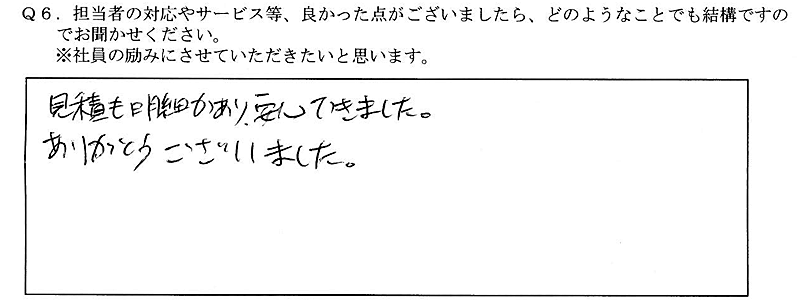 Q6．担当者の対応やサービス等、良かった点がございましたら、どのようなことでも結構ですの
でお聞かせください。
※社員の励みにさせていただきたいと思います。
見積も明細があり、安心できました。
ありがとうございました。